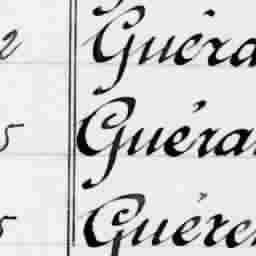 2 Guéra
5 Guéran
5 Guéren